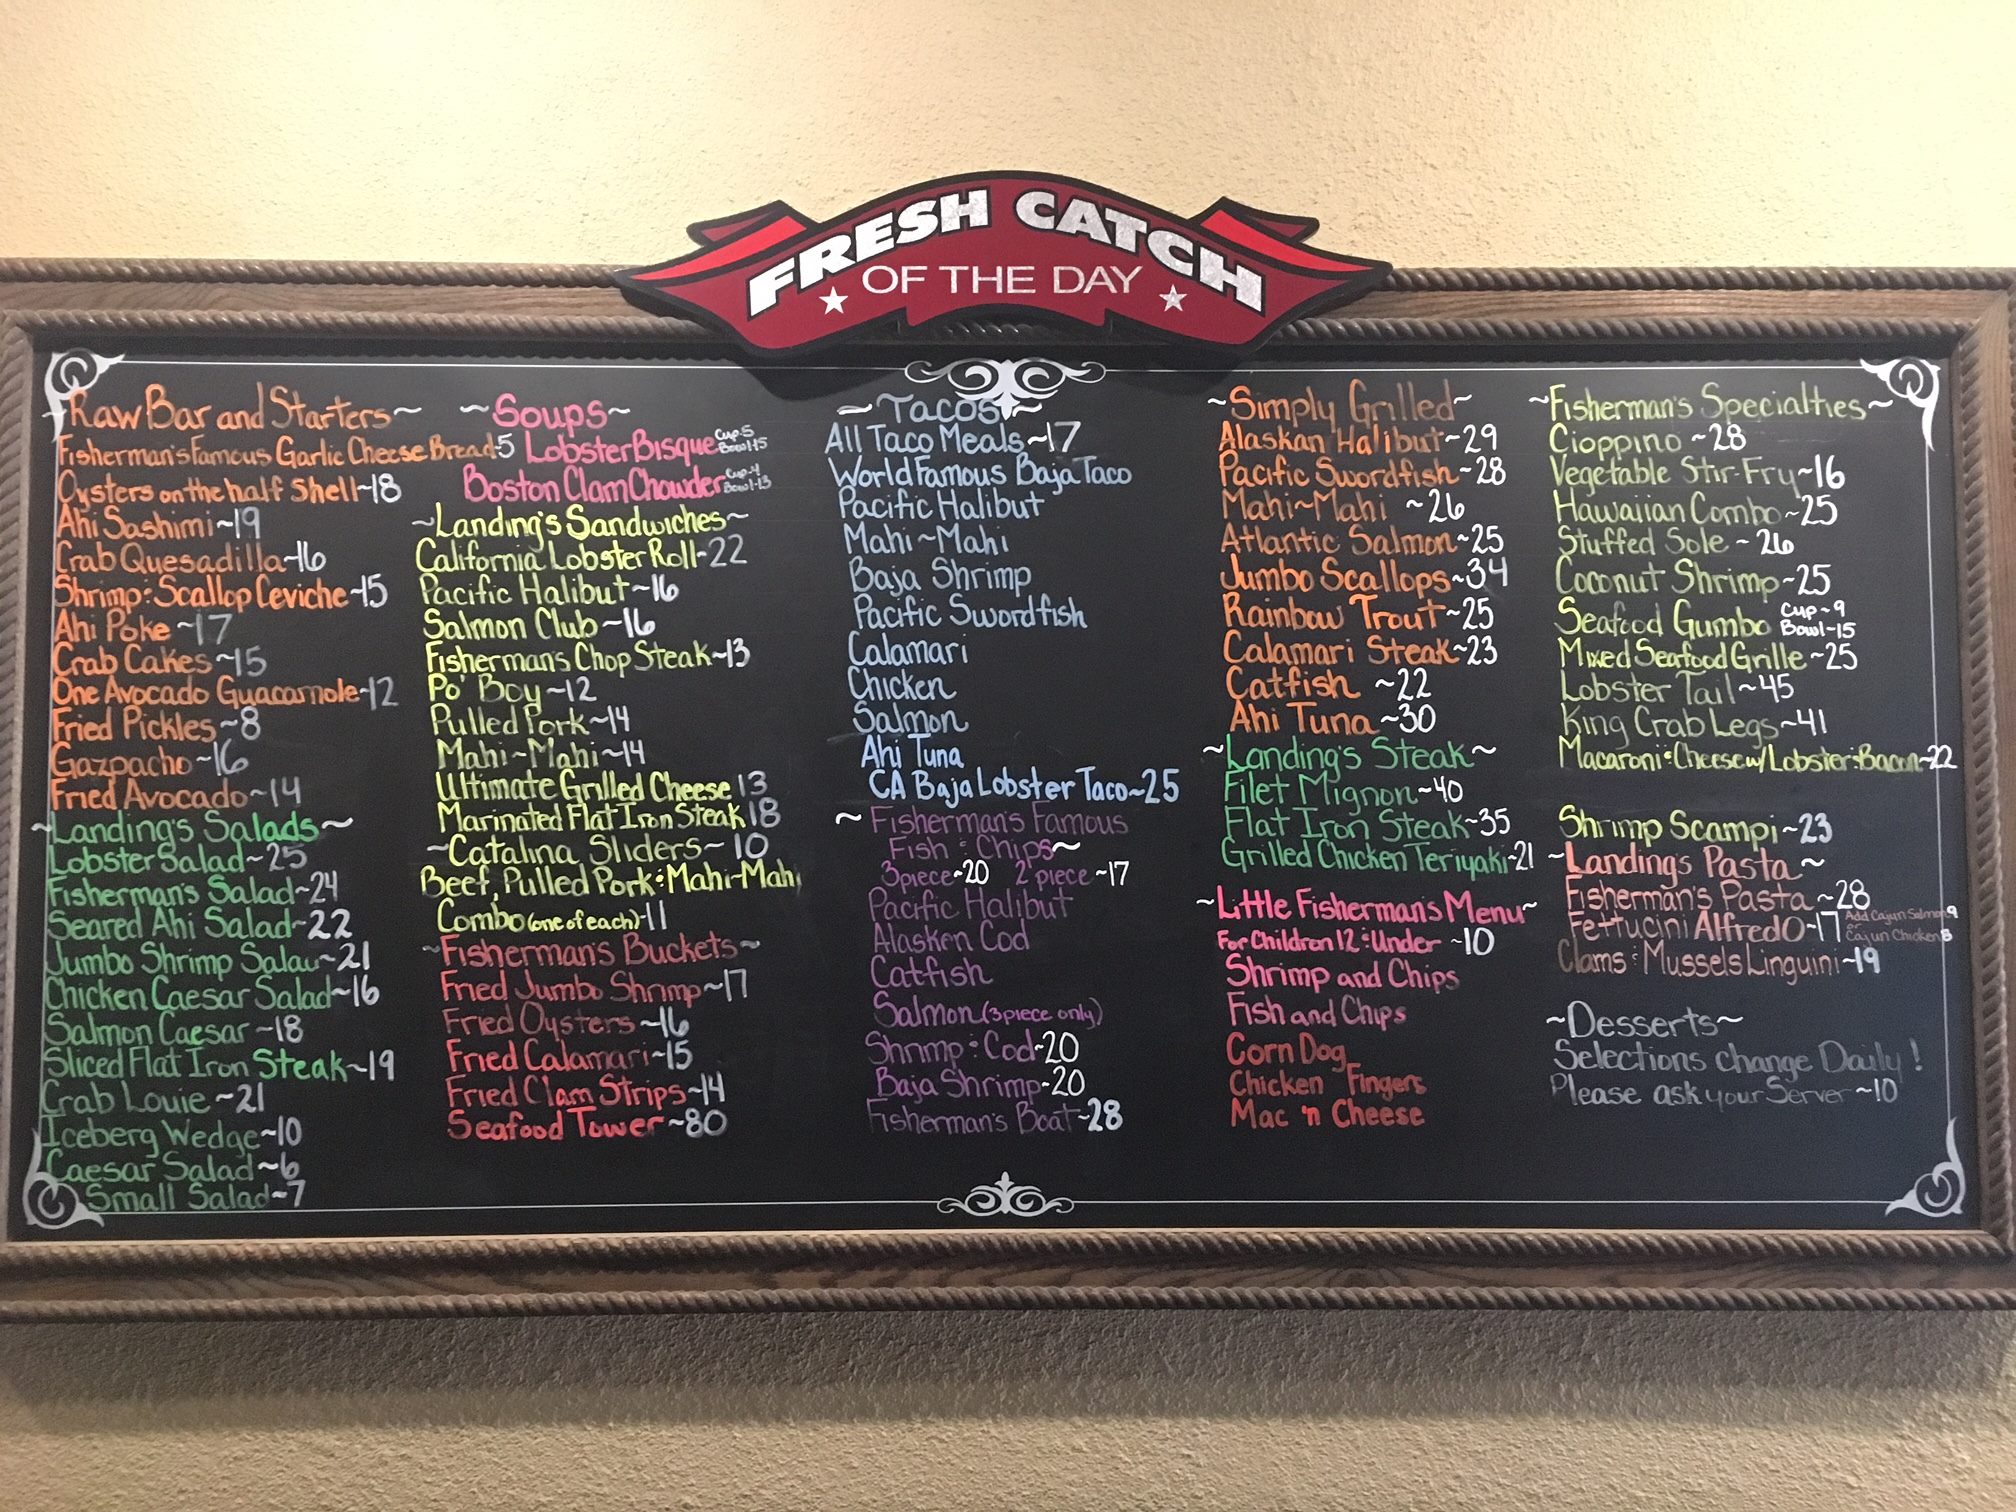 FRESH CATCH
OF THE DAY
~Raw Bar and Starters~
Fisherman's Famous Garlic Cheese Bread-5
Oysters on the half Shell~18
Ahi Sashimi~19
Crab Quesadilla~16
Shrimp : Scallop Ceviche~15
Ahi Poke ~17
Crab Cakes~15
One Avocado Guacamole~12
Fried Pickles~8
Gazpacho~16
Fried Avocado~14
~Landing's Salads~
Lobster Salad~25
Fisherman's Salad~24
Seared Ahi Salad~22
Jumbo Shrimp Salad~21
Chicken Caesar Salad~16
Salmon Caesar ~18
Sliced Flat Iron Steak~19
Crab Louie ~21
Iceberg Wedge~10
Caesar Salad~6
Small Salad~7
~Soups~
Lobster Bisque Cup-5 Bowl-15
Boston Clam Chowder Cup-4 Bowl-13
~Landing's Sandwiches~
California Lobster Roll~22
Pacific Halibut~16
Salmon Club~16
Fisherman's Chop Steak~13
Po' Boy~12
Pulled Pork~14
Mahi~Mahi~14
Ultimate Grilled Cheese 13
Marinated Flat Iron Steak 18
~Catalina Sliders~ 10
Beef, Pulled Pork : Mahi-Mahi
Combo (one of each)-11
~Fisherman's Buckets~
Fried Jumbo Shrimp~17
Fried Oysters ~16
Fried Calamari~15
Fried Clam Strips~14
Seafood Tower ~80
~Tacos~
All Taco Meals~17
World Famous Baja Taco
Pacific Halibut
Mahi~Mahi
Baja Shrimp
Pacific Swordfish
Calamari
Chicken
Salmon
Ahi Tuna
CA Baja Lobster Taco~25
~ Fisherman's Famous
Fish : Chips~
3 piece~20 2 piece ~17
Pacific Halibut
Alasken Cod
Catfish
Salmon (3 piece only)
Shrimp : Cod~20
Baja Shrimp~20
Fisherman's Boat~28
~Simply Grilled~
Alaskan Halibut~29
Pacific Swordfish~28
Mahi~Mahi ~26
Atlantic Salmon~25
Jumbo Scallops~34
Rainbow Trout~25
Calamari Steak~23
Catfish ~22
Ahi Tuna ~30
~Landing's Steak~
Filet Mignon~40
Flat Iron Steak~35
Grilled Chicken Teriyaki~21
~Little Fisherman's Menu~
For Children 12 : Under ~10
Shrimp and Chips
Fish and Chips
Corn Dog
Chicken Fingers
Mac 'n Cheese
~Fisherman's Specialties~
Cioppino ~28
Vegetable Stir-Fry~16
Hawaiian Combo~25
Stuffed Sole ~26
Coconut Shrimp~25
Seafood Gumbo Cup~9 Bowl~15
Mixed Seafood Grille~25
Lobster Tail~45
King Crab Legs~41
Macaroni : Cheese w/ Lobster : Bacon~22
Shrimp Scampi~23
~Landing's Pasta~
Fisherman's Pasta~28
Fettucini Alfredo~17 Add Cajun Salmon 9 or Cajun Chicken 8
Clams : Mussels Linguini~19
~Desserts~
Selections change Daily!
Please ask your Server ~10